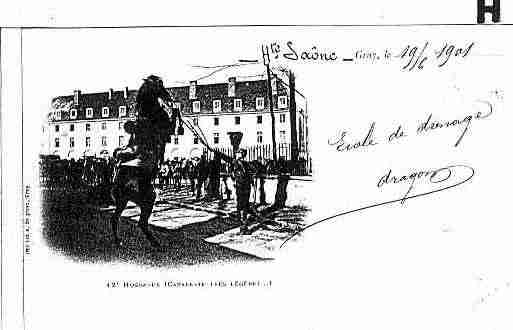 H
Hte Saône - Gray, le 19/6 1901
École de dressage
dragon
12e HUSSARDS (CAVALERIE TRÈS LÉGÈRE...)